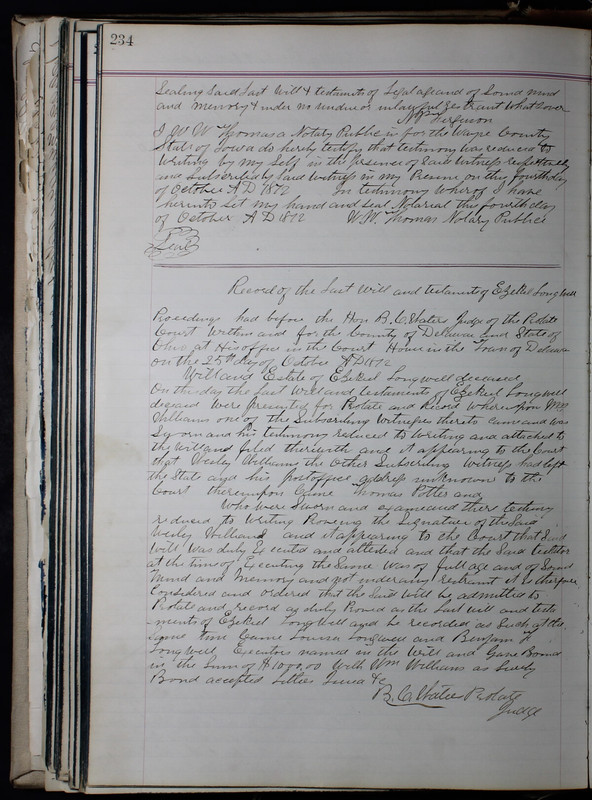 234
Sealing said Last Will & testaments of Legal age and of Sound mind
and memory & under no undue or unlawful restraint Whatsoever
N Ferguson
I W W Thomas a Notary Public in for the Wayne County
State of Iowa do hereby testify that testimony was reduced to
Writing by my Self in the presence of Said Witness respectfully
and Subscribed by Said Witness in my Presence on this fourth day
of October A D 1872 In testimony Whereof I have
hereunto Set my hand and Seal Notareal this fourth day
of October A D 1872 W.W. Thomas Notary Public
Seal
Record of the Last Will and testament of Ezekiel Longwell
Proceedings had before the Hon B. C. Waters Judge of the Probate
Court Within and for the County of Delaware and State of
Ohio at His office in the Court House in the Town of Delaware
on the 25th day of October AD 1872
Will and Estate of Ezekiel Longwell deceased
On this day the Last Will and testaments of Ezekiel Longwell
deceased were presented for Probate and Record Whereupon Wm
Williams one of the Subscribing Witnesses thereto came and was
Sworn and his testimony reduced to Writing and attached to
the Will and filed therewith and it appearing to the Court
that Wesley Williams the Other Subscribing Witness had left
the State and his postoffice address unknown to the
Court thereupon Came Thomas Potter and
Who were Sworn and examined there testimony
reduced to Writing Proveing the Signature of the Said
Wesley Williams and it appearing to the Court that Said
Will was duly Executed and attested and that the Said testator
at the time of Executing the Same Was of full age and of Sound
mind and Memory and not under any restraint it is therefore
Considered and ordered that the Said Will be admitted to
Probate and record as duly Proved as the Last will and testa
ments of Ezekiel Longwell and be recorded as Such at the
Same time Came Longwell and Benjam
Longwell Executors named in the Will and Gave Bond
in the Sum of $1000.00 With Wm Williams as Surety
Bond accepted Letters Issued &c
B. C. Waters Probate
Judge